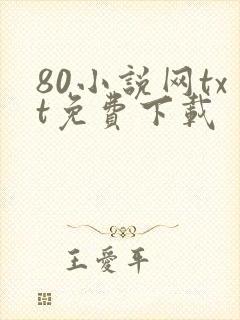 80小説网tx
t免費下載
王愛平